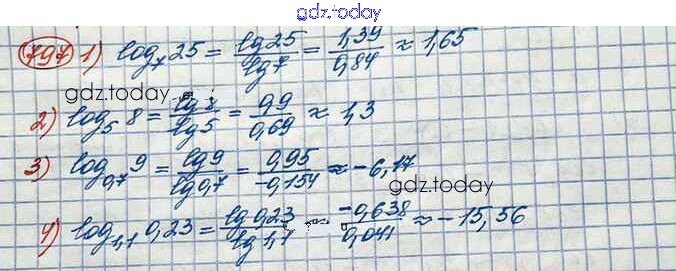 gdz.today
797 1) log₇ 25 = lg 25 / lg 7 = 1,39 / 0,84 ≈ 1,65
gdz.today
2) log₅ 8 = lg 8 / lg 5 = 0,9 / 0,69 ≈ 1,3
3) log₀,₇ 9 = lg 9 / lg 0,7 = 0,95 / -0,154 ≈ -6,17
gdz.today
4) log₁,₁ 0,23 = lg 0,23 / lg 1,1 = -0,638 / 0,041 ≈ -15,56